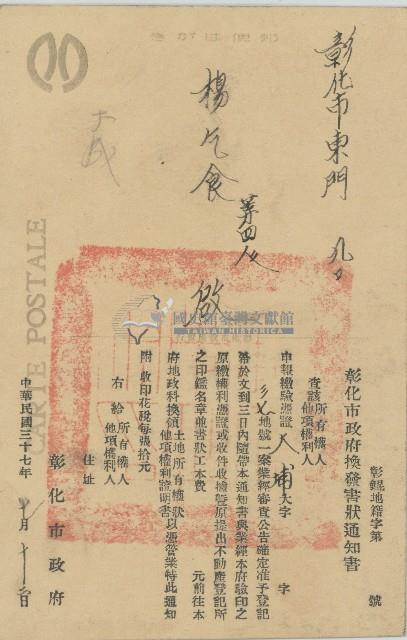 きがは便郵
CARTE POSTALE
彰化市東門 九〇
楊乞食 第四人
啟
國史館臺灣文獻館
TAIWAN HISTORICA
彰化市政府換發書狀通知書
彰錄地籍字第 號
查該所有權人
他項權利人
申報繳驗憑證 大埔大字 字
地號一案業經審查公告確定准予登記
希於文到三日內隨帶本通知書與業經本府驗印之
原繳權利憑證或收件收據暨原提出不動產登記所
之印鑑名章並書狀工本費 元前往本
府地政科換領土地所有權狀
他項權利證明書以憑管業特此通知
附收印花稅每張拾元
右給所有權人
他項權利人
住址
彰化市政府
中華民國三十七年 月十 日